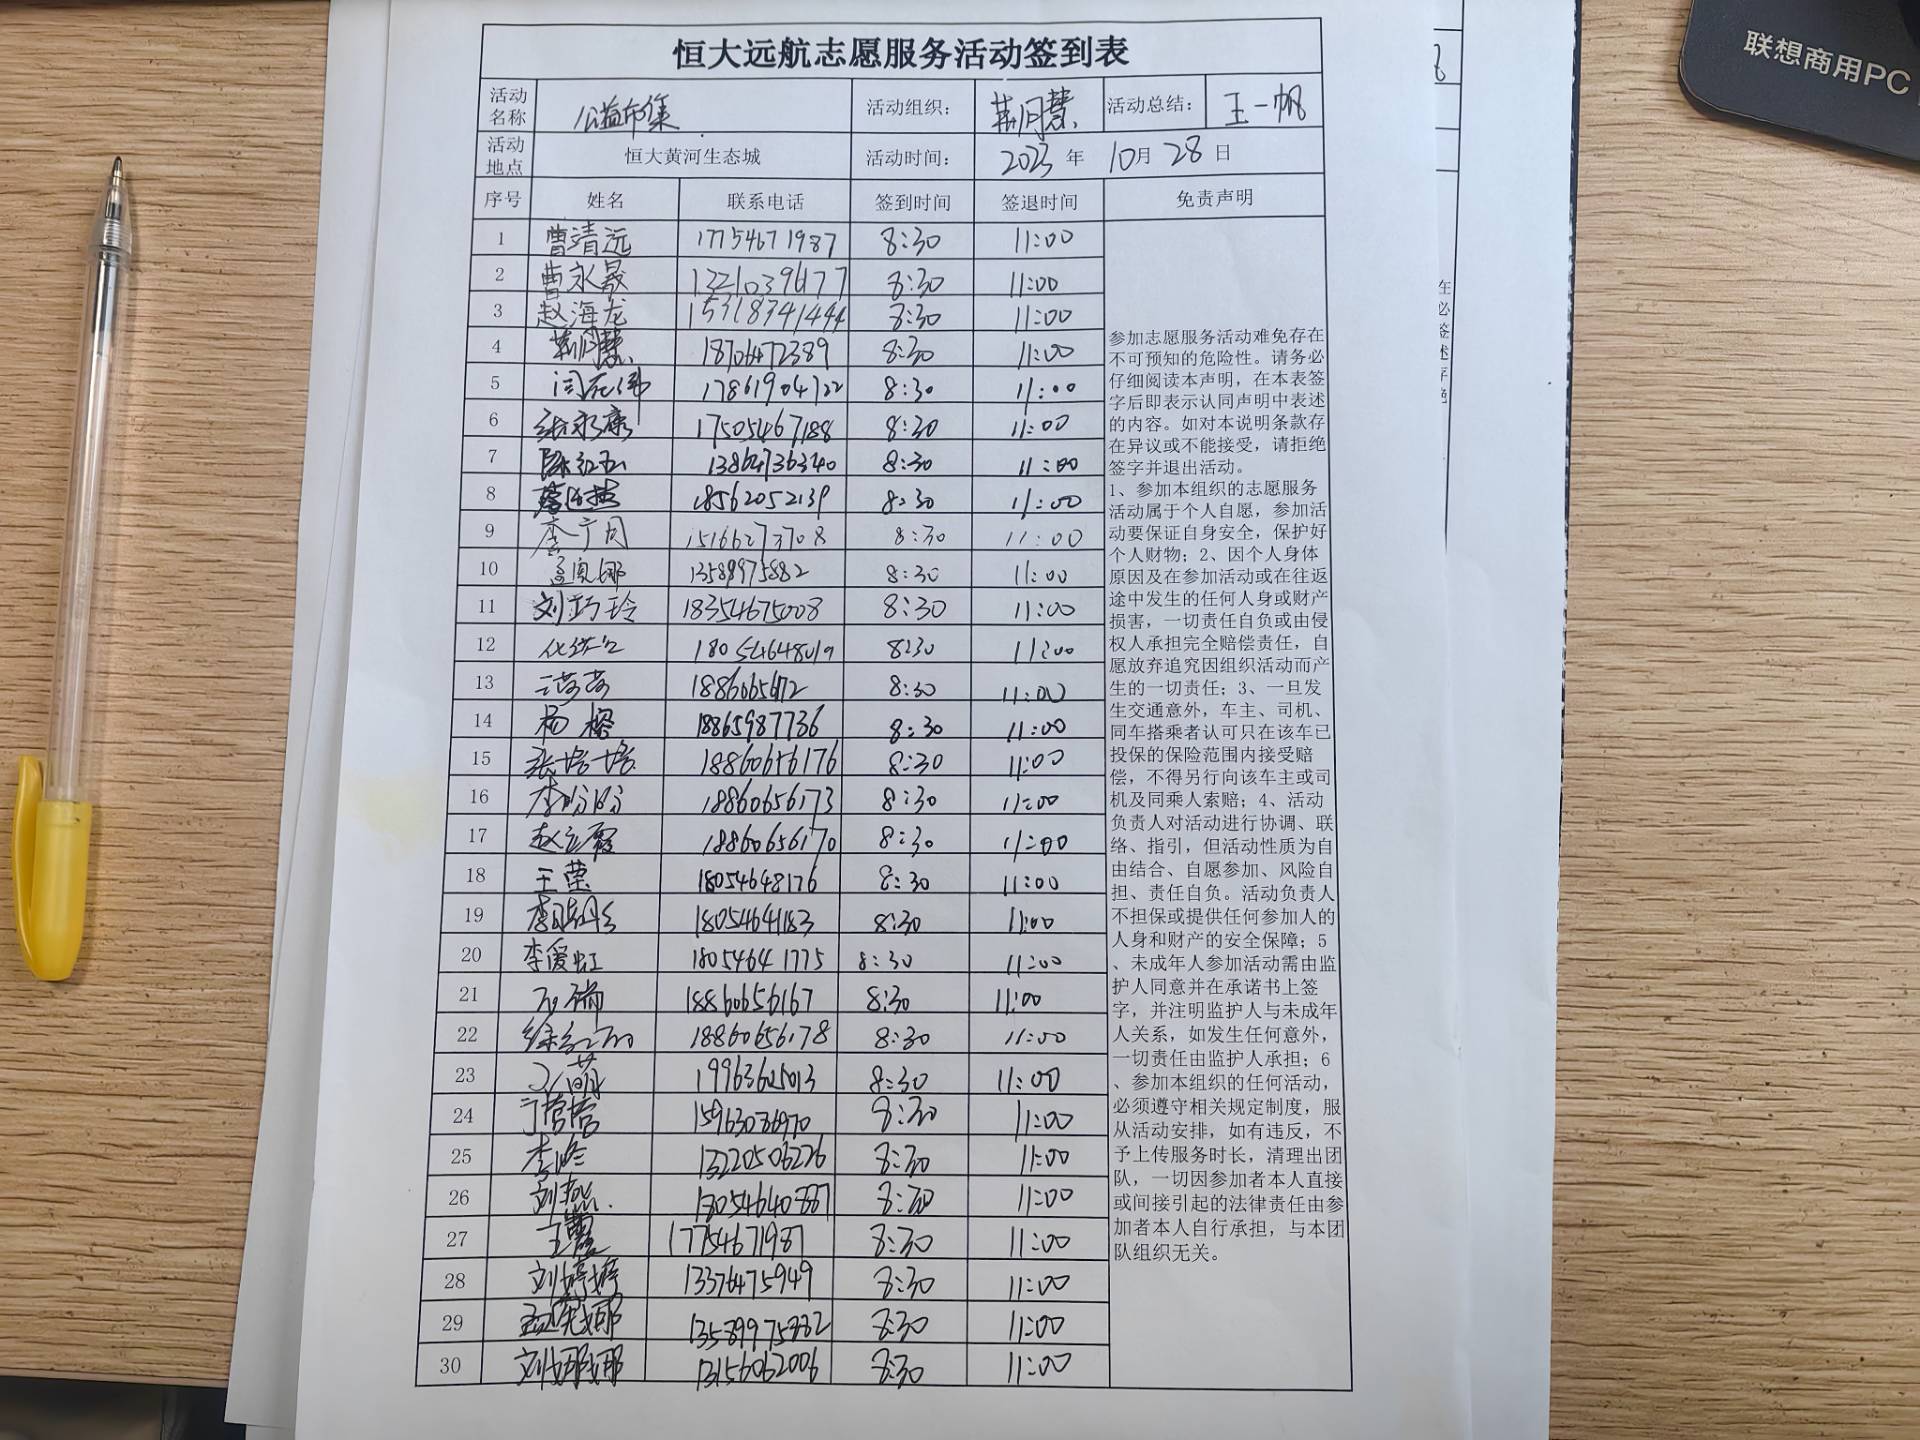 恒大远航志愿服务活动签到表
活动名称 公益市集 活动组织： 荆月慧 活动总结： 王一帆
活动地点 恒大黄河生态城 活动时间： 2023 年 10月 28 日
序号 姓名 联系电话 签到时间 签退时间 免责声明
1 曹清远 17754671987 8:30 11:00
2 曹永晟 13210396177 8:30 11:00
3 赵海龙 15318341444 8:30 11:00
4 荆月慧 18706472389 8:30 11:00
5 17861904722 8:30 11:00
6 张永康 17505467188 8:30 11:00
7 陈红玉 13864736340 8:30 11:00
8 18562052139 8:30 11:00
9 15166273708 8:30 11:00
10 孟奥娜 13589975882 8:30 11:00
11 刘巧玲 18354675008 8:30 11:00
12 18054648019 8:30 11:00
13 8:30 11:00
14 杨榕 18865987736 8:30 11:00
15 张培培 18860656176 8:30 11:00
16 李盼盼 18860656173 8:30 11:00
17 赵立霞 18860656170 8:30 11:00
18 王莹 18054648176 8:30 11:00
19 18054641183 8:30 11:00
20 李爱虹 18054641775 8:30 11:00
21 石瑞 18860656167 8:30 11:00
22 18860656178 8:30 11:00
23 19963625013 8:30 11:00
24 15963036970 8:30 11:00
25 李峰 13220506226 8:30 11:00
26 18054640887 8:30 11:00
27 王霞 17754671987 8:30 11:00
28 刘婷婷 13376475949 8:30 11:00
29 13589975882 8:30 11:00
30 刘娜娜 13156062006 8:30 11:00
参加志愿服务活动难免存在
不可预知的危险性。请务必
仔细阅读本声明，在本表签
字后即表示认同声明中表述
的内容。如对本说明条款存
在异议或不能接受，请拒绝
签字并退出活动。
1、参加本组织的志愿服务
活动属于个人自愿，参加活
动要保证自身安全，保护好
个人财物；2、因个人身体
原因及在参加活动或在往返
途中发生的任何人身或财产
损害，一切责任自负或由侵
权人承担完全赔偿责任，自
愿放弃追究因组织活动而产
生的一切责任；3、一旦发
生交通意外，车主、司机、
同车搭乘者认可只在该车已
投保的保险范围内接受赔
偿，不得另行向该车主或司
机及同乘人索赔；4、活动
负责人对活动进行协调、联
络、指引，但活动性质为自
由结合、自愿参加、风险自
担、责任自负。活动负责人
不担保或提供任何参加人的
人身和财产的安全保障；5
、未成年人参加活动需由监
护人同意并在承诺书上签
字，并注明监护人与未成年
人关系，如发生任何意外，
一切责任由监护人承担；6
、参加本组织的任何活动，
必须遵守相关规定制度，服
从活动安排，如有违反，不
予上传服务时长，清理出团
队，一切因参加者本人直接
或间接引起的法律责任由参
加者本人自行承担，与本团
队组织无关。
联想商用PC